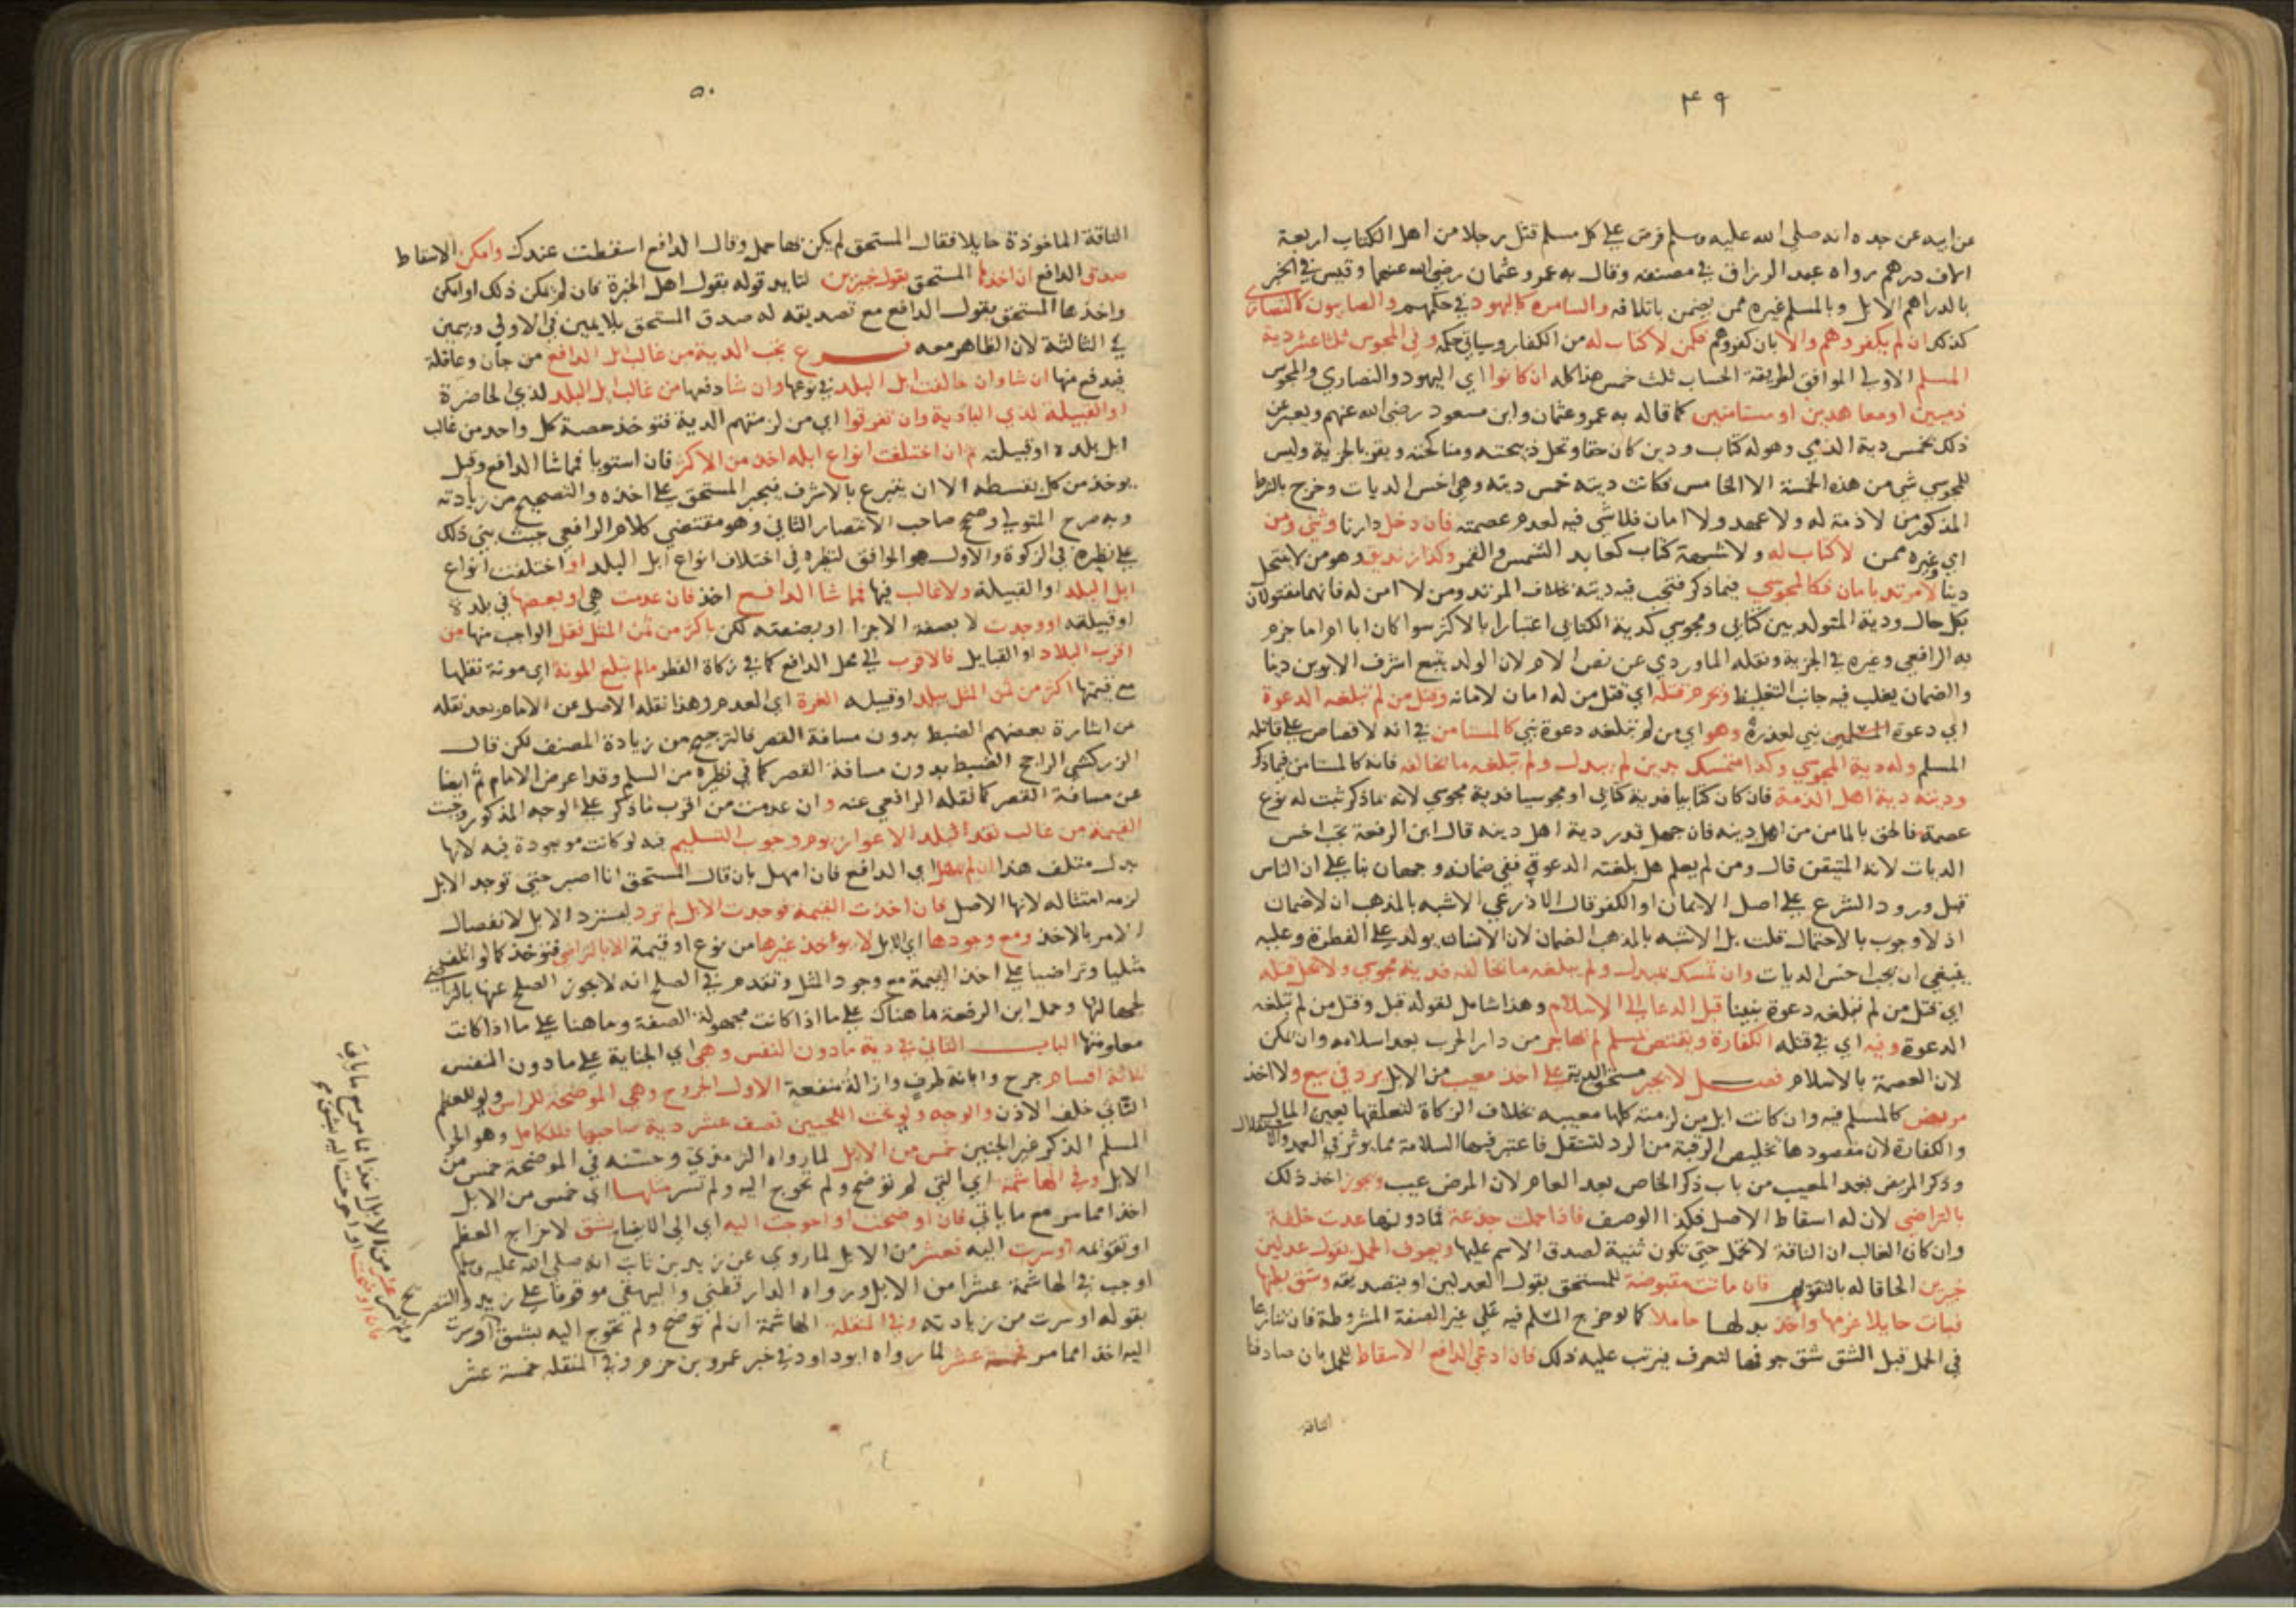 ٤٩
عن ابيه عن جده انه صلى الله عليه وسلم فرض على كل مسلم قتل رجلا من اهل الكتاب اربعة
الاف درهم رواه عبد الرزاق في مصنفه وقال به عمر وعثمان رضي الله عنهما وقيس في الخبر
بالدراهم الابل وبالمسلم غيره ممن يضمن باتلافه والسامرة كاليهود في حكمهم والصابيون كالنصارى
كذلك ان لم يكفروهم والا بان كفروهم فكمن لا كتاب له من الكفار وسياتي حكمه وفي المجوس ثلثا عشر دية
المسلم الاولى الموافق لطريقة الحساب ثلث خمس هذا كله ان كانوا اي اليهود والنصارى والمجوس
ذميين او معاهدين او مستامنين كما قاله به عمر وعثمان وابن مسعود رضي الله عنهم ويعبر عن
ذلك بخمس دية الذمي وهو له كتاب ودين كان حقا وتحل ذبيحته ومناكحته ويقر بالجزية وليس
للمجوسي شي من هذه الخمسة الا الخامس فكانت ديته خمس ديته وهي اخس الديات وخرج بالشرط
المذكور من لا ذمة له ولا عهد ولا امان فلا شي فيه لعدم عصمته فان دخل دارنا وثني ومن
اي وغيره ممن لا كتاب له ولا شبهة كتاب كعابد الشمس والقمر وكذا زنديق وهو من لا ينتحل
دينا لا مرتد بامان فكالمجوسي فيما ذكر فتجب فيه ديته بخلاف المرتد ومن لا امن له فانهما مقتولان
بكل حال ودية المتولد بين كتابي ومجوسي كدية الكتابي اعتبارا بالاكثر سوا كان ابا ام اما جزم
به الرافعي وغيره في الجزية ونقله الماوردي عن نص الام لان الولد يتبع اشرف الابوين دينا
والضمان يغلب فيه جانب التغليظ ويحرم قتله اي قتل من له امان لامانه وقتل من لم تبلغه الدعوة
اي دعوة نبي لعذره وهو اي من لم تبلغه دعوة نبي كالمستامن في انه لا قصاص على قاتله
المسلم وله دية المجوسي وكذا متمسك بدين لم يبدل ولم تبلغه ما يخالفه فانه كالمستامن فيما ذكر
وديته دية اهل الذمة فان كان كتابيا فدية كتابي او مجوسيا فدية مجوسي لانه بما ذكر ثبت له نوع
عصمة فالحق بالمامن من اهل دينه فان جهل قدر دية اهل دينه قال ابن الرفعة تجب اخس
الديات لانه المتيقن قال ومن لم يعلم هل بلغته الدعوة ففي ضمانه وجهان بنا على ان الناس
قبل ورود الشرع على اصل الايمان او الكفر قال الاذرعي الاشبه بالمذهب ان لا ضمان
اذ لا وجوب بالاحتمال قلت بل الاشبه بالمذهب الضمان لان الانسان يولد على الفطرة وعليه
ينبغي ان تجب اخس الديات وان تمسك بمبدل ولم يبلغه ما يخالفه فدية مجوسي ولا يحل قتله
اي قتل من لم تبلغه دعوة نبينا قبل الدعا الى الاسلام وهذا شامل لقوله قبل وقتل من لم تبلغه
الدعوة وفيه اي في قتله الكفارة ويقتص لمسلم لم يهاجر من دار الحرب بعد اسلامه وان تمكن
لان العصمة بالاسلام فصل لا يجبر مستحق الدية على اخذ معيب من الابل يرد في بيع ولا اخذ
مريض كالمسلم فيه وان كانت ابل من لزمته كلها معيبه بخلاف الزكاة لتعلقها بعين المال
والكفارة لان مقصودها تخليص الرقبة من الرد لتستقل فاعتبر فيها السلامة مما يوثر في العمد والاستقلال
وذكر المريض بعد المعيب من باب ذكر الخاص بعد العام لان المرض عيب ويجوز اخذ ذلك
بالتراضي لان له اسقاط الاصل فكذا الوصف فاذا حملت جذعة فما دونها عدت خلفة
وان كان الغالب ان الناقة لا تحمل حتى تكون ثنية لصدق الاسم عليها ويعرف الحمل بقول عدلين
خبرين الحاقا له بالتقويم فان ماتت مقبوضة للمستحق بقول العدلين او بتصديقه وشق بطنها
فبانت حايلا غرمها واخذ بدلها حاملا كما لو خرج المسلم فيه على غير الصفة المشروطة فان تنازعا
في الحمل قبل الشق شق جوفها لتعرف فيرتب عليه ذلك فان ادعى الدافع الاسقاط للحمل بان صادفنا
الناقة
٥٠
الناقة الماخوذة حايلا فقال المستحق لم يكن فيها حمل وقال الدافع اسقطت عندك وامكن الاسقاط
صدق الدافع ان اخذها المستحق بقول خبيرين لتايد قوله بقول اهل الخبرة فان لم يمكن ذلك او امكن
واخذها المستحق بقول الدافع مع تصديقه له صدق المستحق بلا يمين في الاولى وبيمين
في الثانية لان الظاهر معه فرع تجب الدية من غالب ابل الدافع من جان وعاقلة
فيدفع منها ان شا وان خالفت ابل البلد في نوعها وان شا دفعها من غالب ابل البلد لذي الحاضرة
او القبيلة لذي البادية وان تفرقوا اي من لزمتهم الدية فتوخذ حصة كل واحد من غالب
ابل بلده او قبيلته ثم ان اختلفت انواع ابله اخذ من الاكثر فان استويا فما شا الدافع وقيل
يوخذ من كل بقسطه الا ان يتبرع بالاشرف فيجبر المستحق على اخذه والتصحيح من زيادته
وبه صرح المتولي وصحح صاحب الانتصار الثاني وهو مقتضى كلام الرافعي حيث بنى ذلك
على نظيره في الزكوة والاول هو الموافق لنظيره في اختلاف انواع ابل البلد او اختلفت انواع
ابل البلد او القبيلة ولا غالب فيها فما شا الدافع اخذ فان عدمت هي او بعضها في بلده
او قبيلته او وجدت لا بصفة الاجزا او بصفته لكن باكثر من ثمن المثل نقل الواجب منها من
اقرب البلاد او القبايل فالاقرب الى محل الدافع كما في زكاة الفطر ما لم تبلغ المونة اي مونة نقلها
مع قيمتها اكثر من ثمن المثل ببلد او قبيلة العزة اي العدم وهذا نقله الاصل عن الامام بعد نقله
عن اشارة بعضهم الضبط بدون مسافة القصر فالترجيح من زيادة المصنف لكن قال
الزركشي الراجح الضبط بدون مسافة القصر كما في نظيره من السلم وقد اعرض الامام ثم ايضا
عن مسافة القصر كما نقله الرافعي عنه وان عدمت من اقرب ما ذكر على الوجه المذكور وجبت
القيمة من غالب نقد البلد الاعواز يوم وجوب التسليم فيه لو كانت موجودة فيه لانها
بدل متلف هذا ان لم يمهل اي الدافع فان امهل بان قال المستحق انا اصبر حتى توجد الابل
لزمه امتثاله لانها الاصل فان اخذت القيمة فوجدت الابل لم ترد ليسترد الابل لانفصال
الامر بالاخذ ومع وجودها اي الابل لا يوخذ غيرها من نوع او قيمة الا بالتراضي فتوخذ كما لو اتلف
مثليا وتراضيا على اخذ القيمة مع وجود المثل وتقدم في الصلح انه لا يجوز الصلح عنها بالتراضي
لجهالتها وحمل ابن الرفعة ما هناك على ما اذا كانت مجهولة الصفة وما هنا على ما اذا كانت
معلومتها الباب الثاني في دية ما دون النفس وهي اي الجناية على ما دون النفس
ثلاثة اقسام جرح وابانة طرف وازالة منفعة الاول الجروح وهي الموضحة للراس ولو للعظم
الثاني خلف الاذن والوجه ولو تحت اللحيين نصف عشر دية صاحبها للكامل وهو الحر
المسلم الذكر غير الجنين خمس من الابل لما رواه الترمذي وحسنه في الموضحة خمس من
الابل وفي الهاشمة اي التي لم توضح ولم تحوج اليه ولم تسر مثلها اي خمس من الابل
اخذا مما مر مع ما ياتي فان اوضحت او احوجت اليه اي الى الايضاح بشق لاخراج العظم
او تقويمه او سرت اليه فعشر من الابل لما روي عن زيد بن ثابت انه صلى الله عليه وسلم
اوجب في الهاشمة عشرا من الابل ورواه الدارقطني والبيهقي موقوفا على زيد والتصريح
بقوله او سرت من زيادته وفي المنقلة الهاشمة ان لم توضح ولم تحوج اليه بشق او سرت
اليه اخذا مما مر خمسة عشر لما رواه ابو داود في خبر عمرو بن حزم وفي المنقله خمسة عشر
عشر من الابل اخذا مما مر مع ما ياتي
فان اوضحت او احوجت اليه بشق